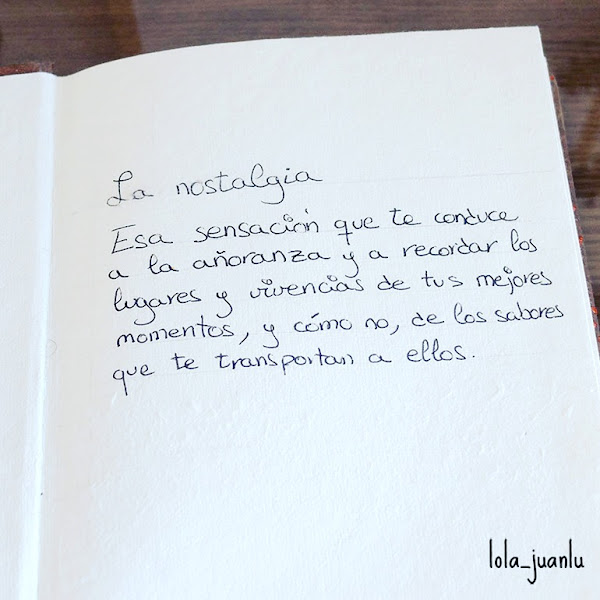 La nostalgia
Esa sensación que te conduce
a la añoranza y a recordar los
lugares y vivencias de tus mejores
momentos, y cómo no, de los sabores
que te transportan a ellos.
lola_juanlu